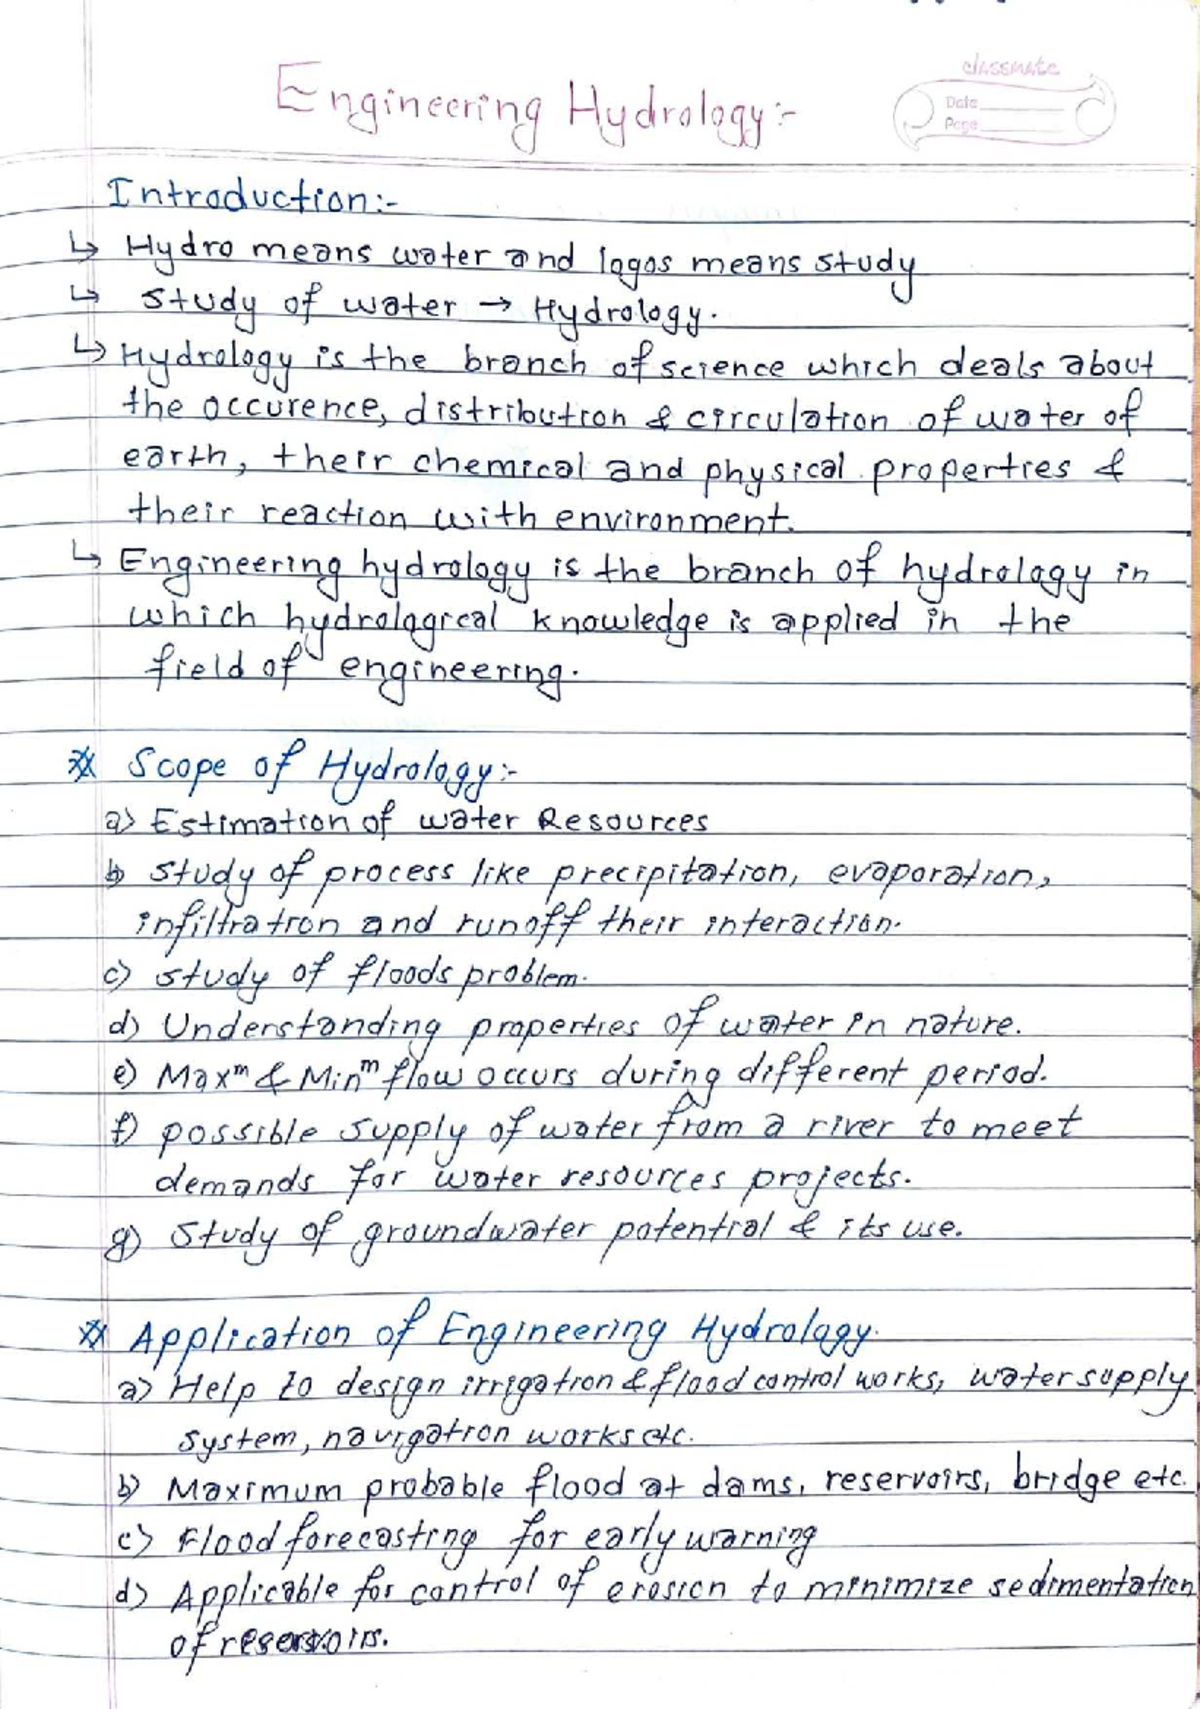 classmate
Date
Page
Engineering Hydrology:-
Introduction:-
↳ Hydro means water and logos means study
↳ study of water → Hydrology.
↳ Hydrology is the branch of science which deals about
the occurence, distribution & circulation of water of
earth, their chemical and physical properties &
their reaction with environment.
↳ Engineering hydrology is the branch of hydrology in
which hydrological knowledge is applied in the
field of engineering.
※ Scope of Hydrology:-
a) Estimation of water Resources
b) study of process like precipitation, evaporation,
infiltration and runoff their interaction.
c) study of floods problem.
d) Understanding properties of water in nature.
e) Maxᵐ & Minᵐ flow occurs during different period.
f) possible supply of water from a river to meet
demands for water resources projects.
g) Study of groundwater potential & its use.
※ Application of Engineering Hydrology.
a) Help to design irrigation & flood control works, water supply
system, navigation works etc.
b) Maximum probable flood at dams, reservoirs, bridge etc.
c) Flood forecasting for early warning
d) Applicable for control of erosion to minimize sedimentation
of reservoirs.